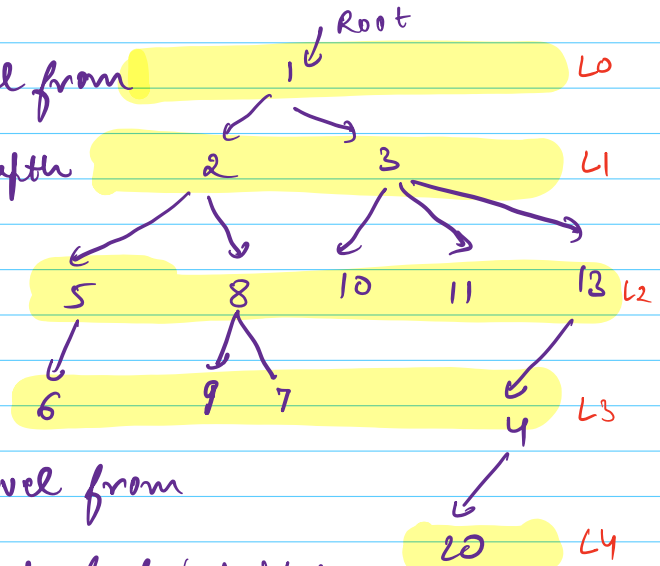 Root
from 1 L0
2 3 L1
5 8 10 11 13 L2
6 9 7 4 L3
from
20 L4